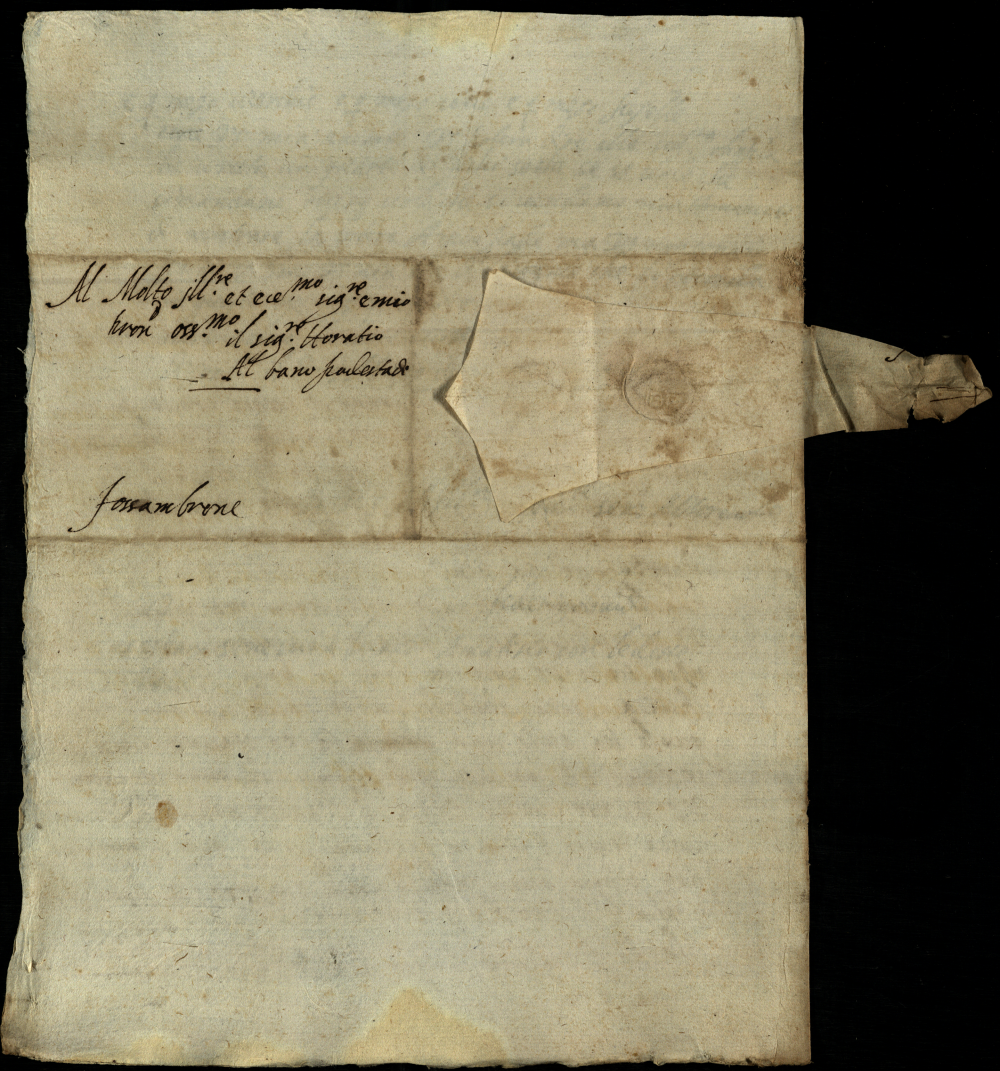 Al Molto jll.re et ecc.mo sig.re e mio
pron oss.mo il sig.re Horatio
Al bano podestade
fossambrone